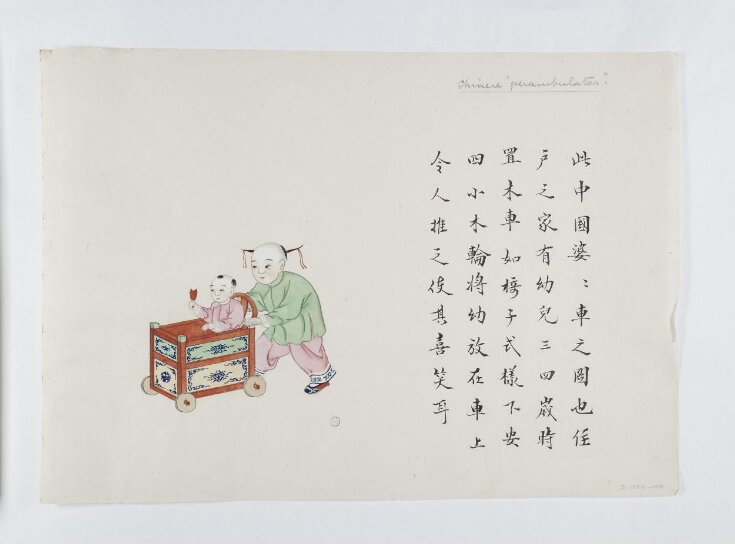 Chinese "perambulator".
此中國婆〻車之圖也住
戶之家有幼兒三四歲時
置木車如椅子式樣下安
四小木輪將幼放在車上
令人推之使其喜笑耳